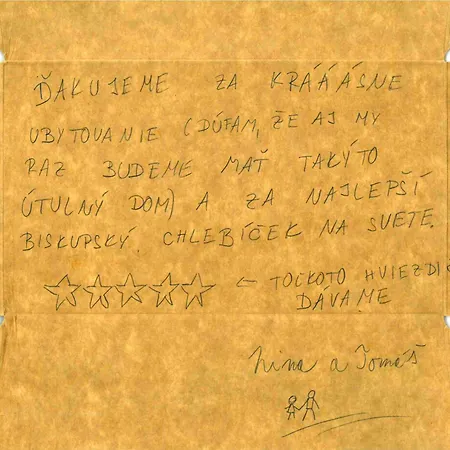 ĎAKUJEME ZA KRÁÁÁSNE
UBYTOVANIE (DÚFAM, ŽE AJ MY
RAZ BUDEME MAŤ TAKÝTO
ÚTULNÝ DOM) A ZA NAJLEPŠÍ
BISKUPSKÝ CHLEBÍČEK NA SVETE.
← TOĽKOTO HVIEZDIC
DÁVAME
Nina a Tomáš